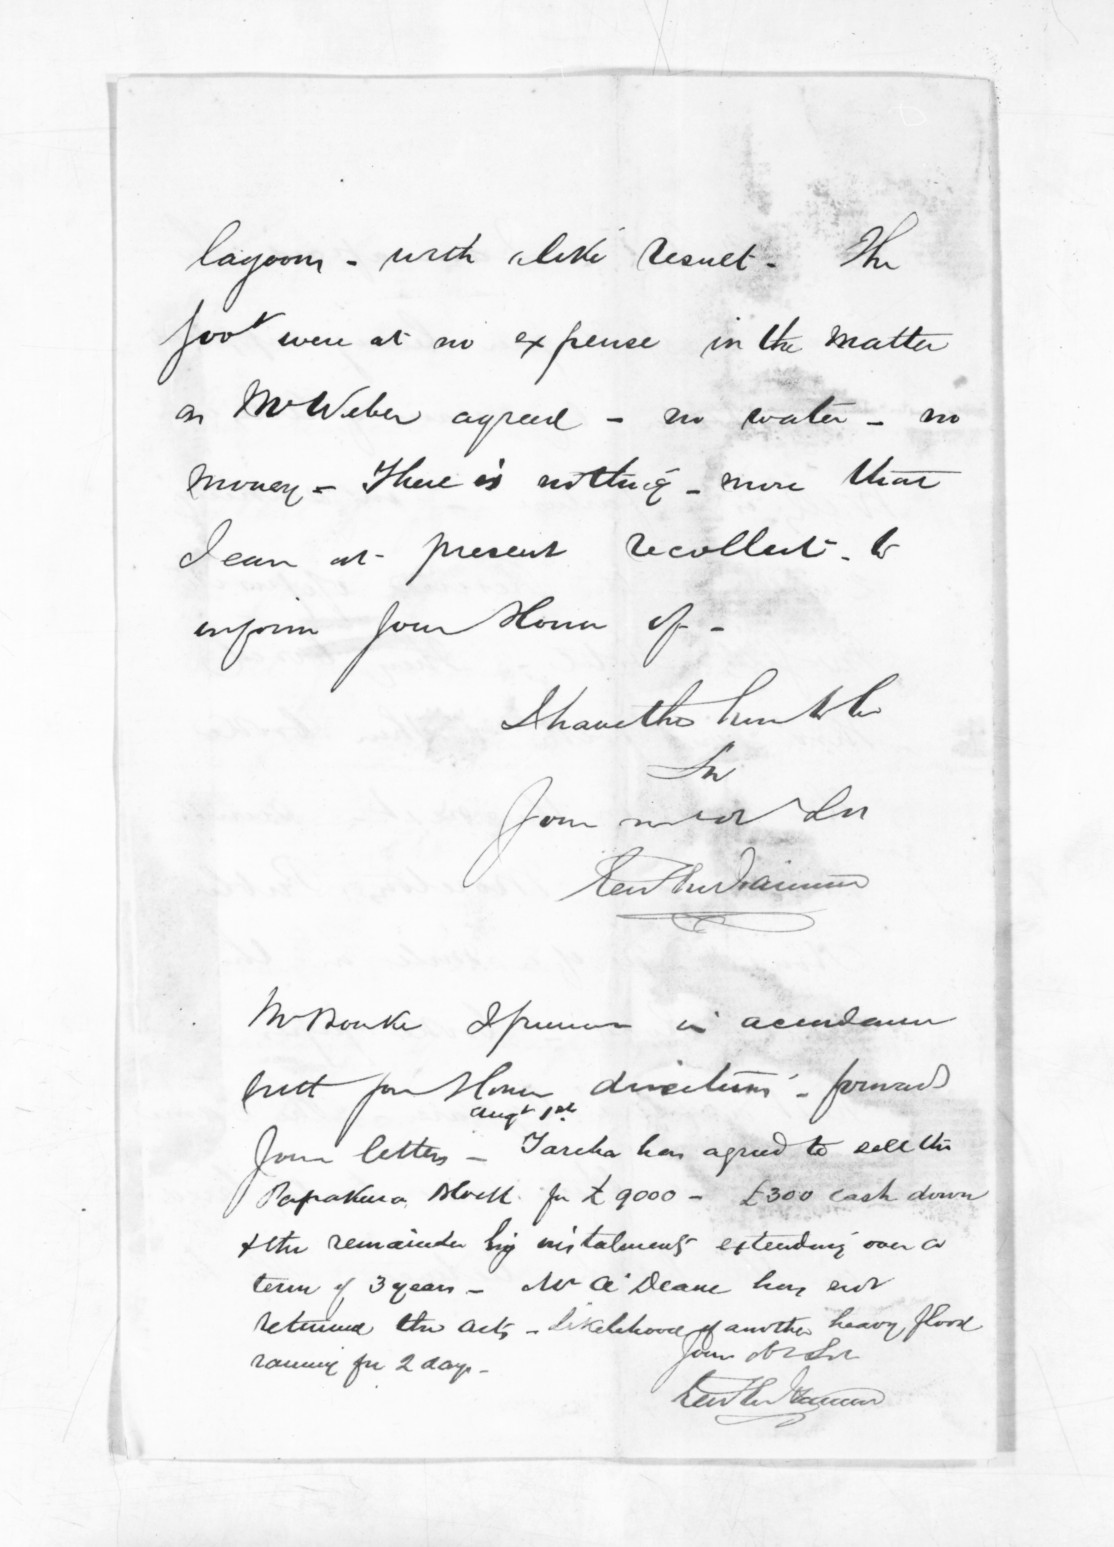 lagoon - with like result - The
Govt were at no expense in the matter
as Mr Weber agreed - no water - no
money - There is nothing - more that
I can at present recollect - to
inform Your Honor of -
I have the honor to be
Sir
Your most obt Svt
Mr Bourke I presume in accordance
with your Honor directions - forwards
Augt 1st
Your letters - Tareha has agreed to sell the
Papakura Block for £9000 - £300 cash down
& the remainder by instalments extending over a
term of 3 years - Mr A'Deane has not
returned the acts - Likelihood of another heavy flood
raining for 2 days -
Your Ob Svt